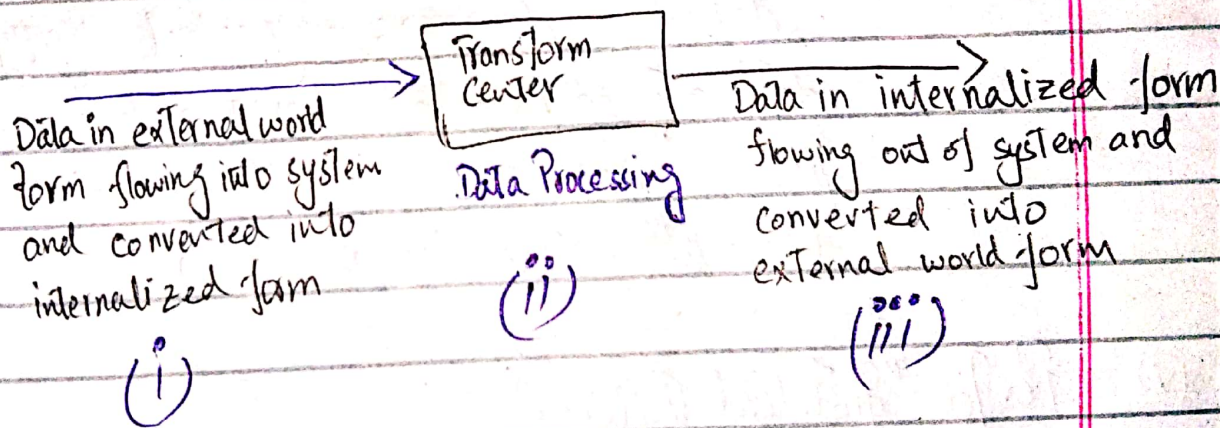 Transform
Center
Data in external world
form flowing into system
and converted into
internalized form
(i)
Data Processing
(ii)
Data in internalized form
flowing out of system and
converted into
external world form
(iii)